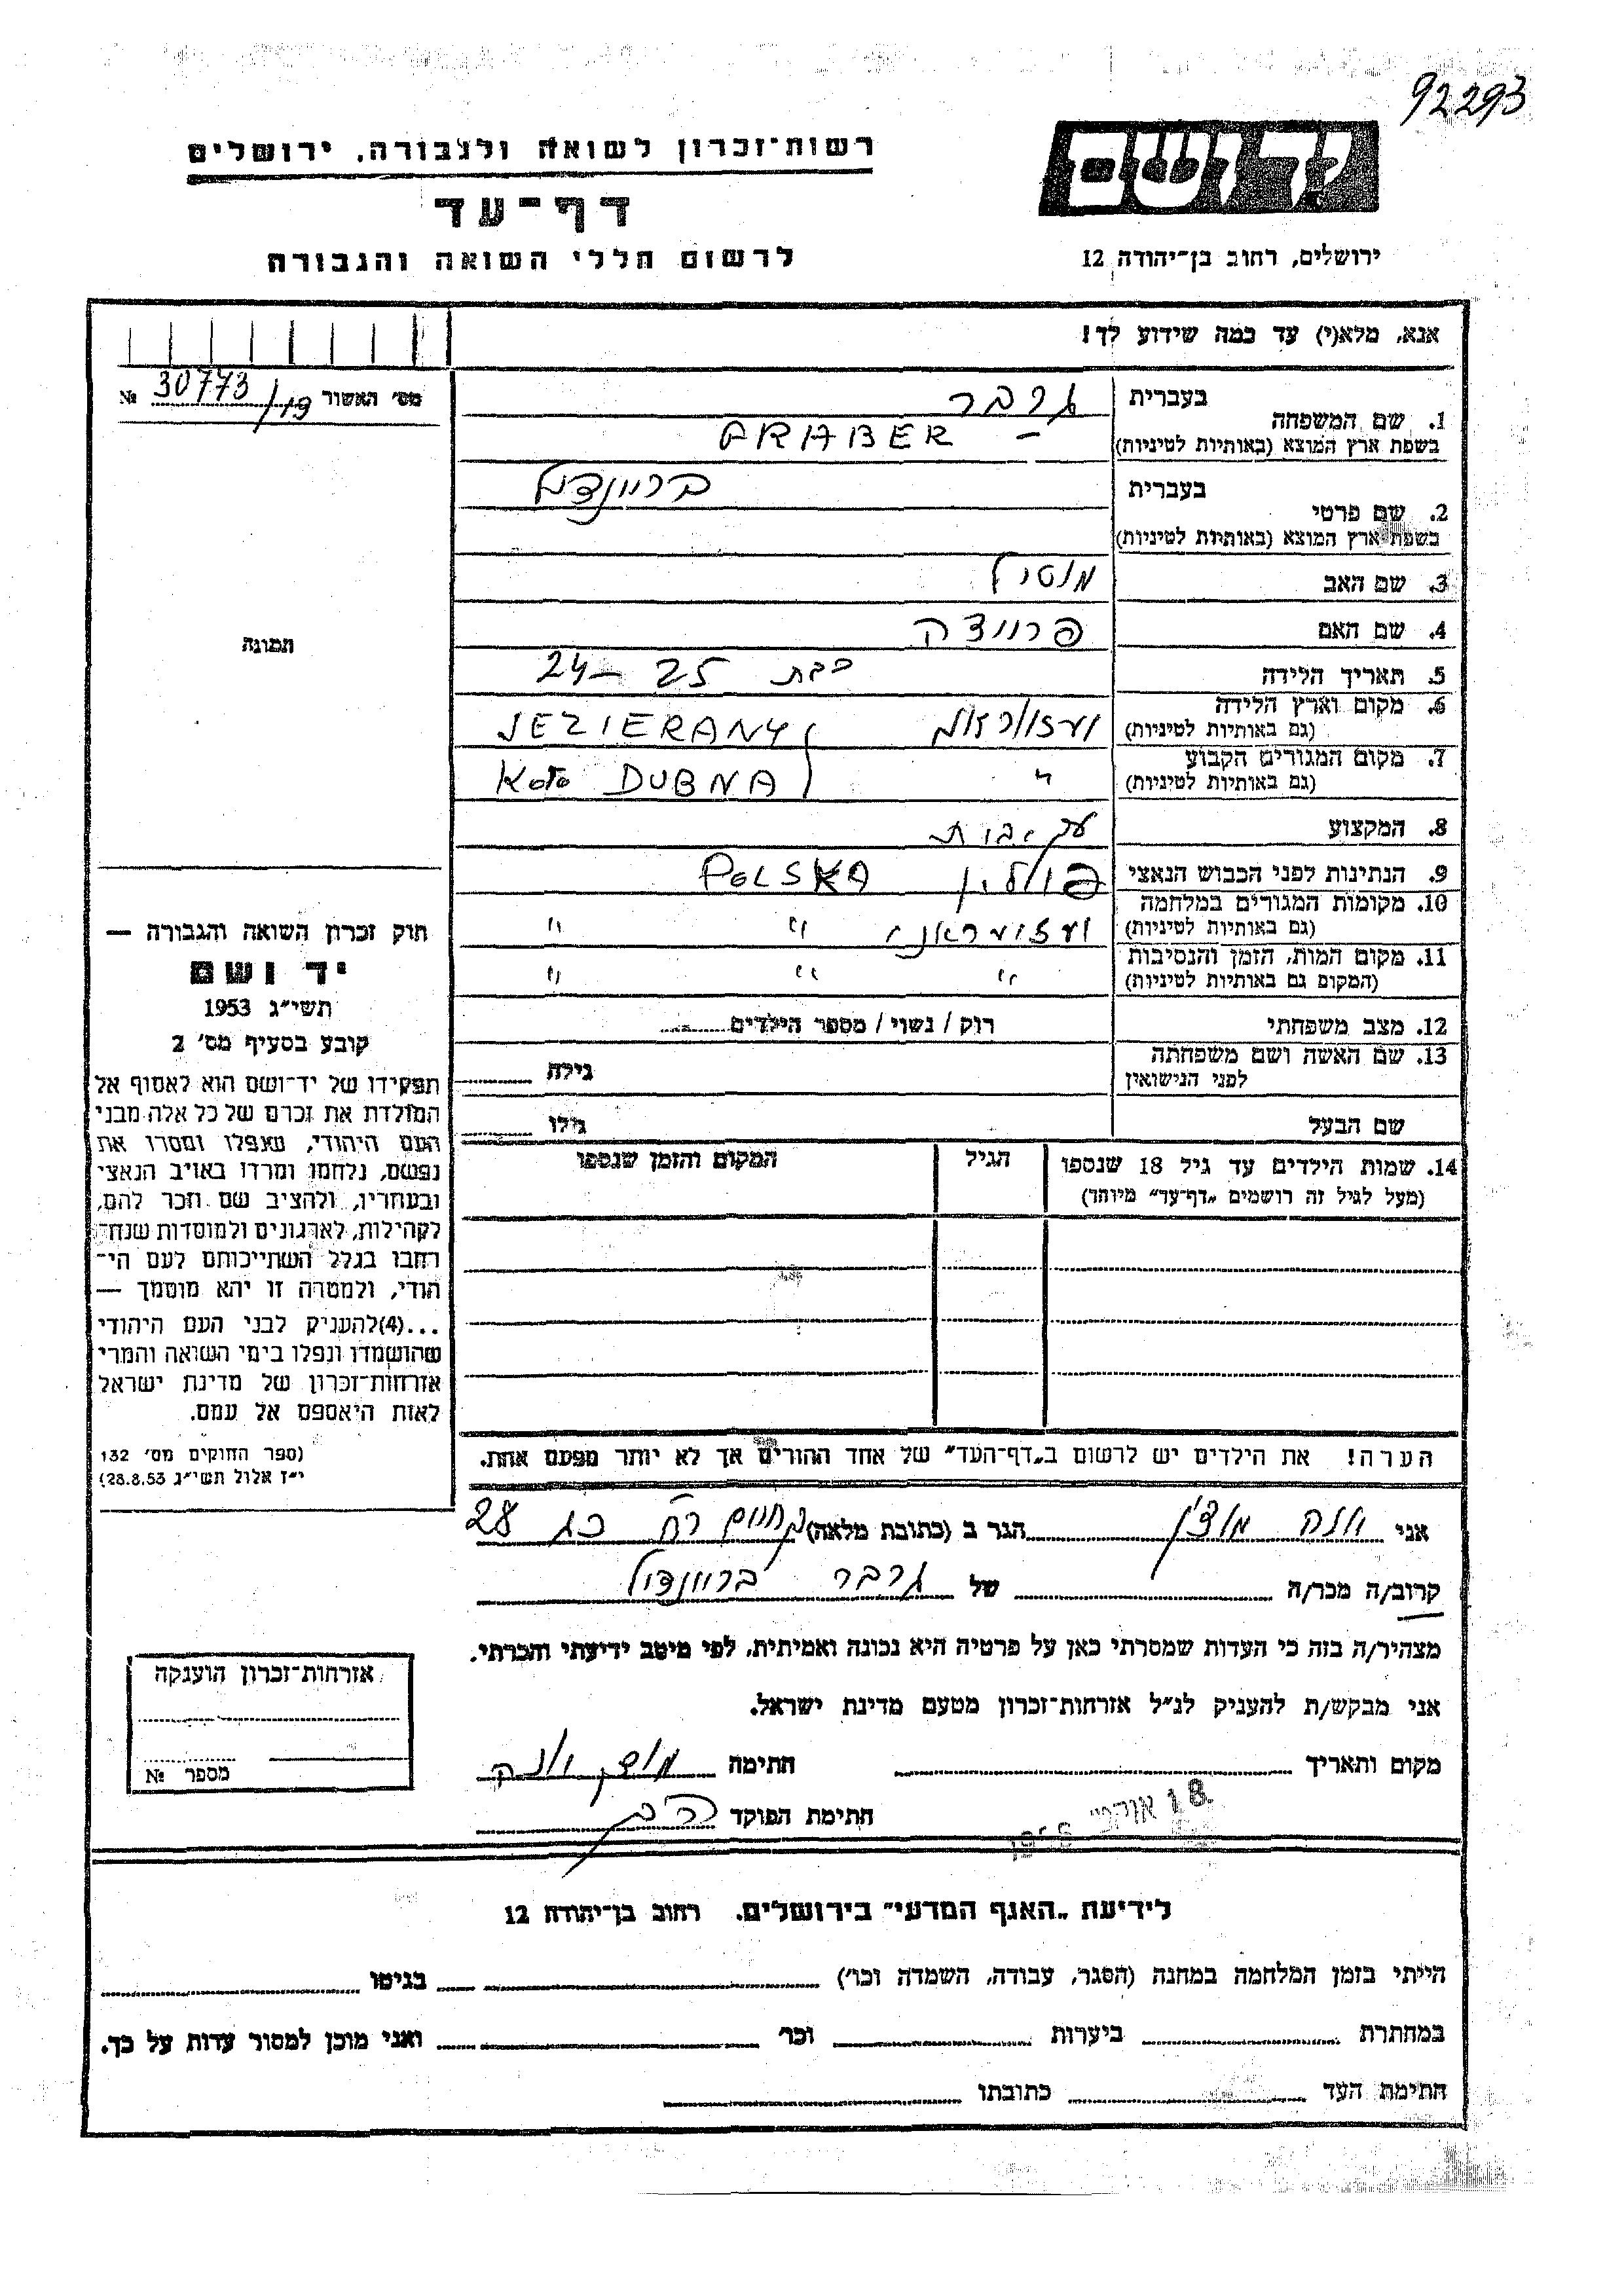 92293
רשות־זכרון לשואה ולגבורה, ירושלים
יד ושם
דף־עד
לרשום חללי השואה והגבורה
ירושלים, רחוב בן־יהודה 12
אנא, מלא(י) עד כמה שידוע לך!
מס׳ האשור 30773/19 №
בעברית גרבר
1. שם המשפחה
בשפת ארץ המוצא (באותיות לטיניות) GRABER —
בעברית בריינדיל
2. שם פרטי
בשפת ארץ המוצא (באותיות לטיניות)
3. שם האב
4. שם האם פריידה
תמונה
5. תאריך הלידה כבת 25 – 24
6. מקום וארץ הלידה JEZIERANY
(גם באותיות לטיניות)
7. מקום המגורים הקבוע " Koło DUBNA
(גם באותיות לטיניות)
8. המקצוע
9. הנתינות לפני הכבוש הנאצי פולין POLSKA
10. מקומות המגורים במלחמה
(גם באותיות לטיניות) " "
11. מקום המות, הזמן והנסיבות
(המקום גם באותיות לטיניות) " " "
12. מצב משפחתי רוק / נשוי / מספר הילדים
13. שם האשה ושם משפחתה גילה
לפני הנישואין
שם הבעל גילו
14. שמות הילדים עד גיל 18 שנספו הגיל המקום והזמן שנספו
(מעל לגיל זה רושמים „דף־עד״ מיוחד)
חוק זכרון השואה והגבורה —
יד ושם
תשי״ג 1953
קובע בסעיף מס׳ 2
תפקידו של יד־ושם הוא לאסוף אל
המולדת את זכרם של כל אלה מבני
העם היהודי, שנפלו ומסרו את
נפשם, נלחמו ומרדו באויב הנאצי
ובעוזריו, ולהציב שם וזכר להם,
לקהילות, לארגונים ולמוסדות שנח־
רבו בגלל השתייכותם לעם הי־
הודי, ולמטרה זו יהא מוסמך —
...(4) להעניק לבני העם היהודי
שהושמדו ונפלו בימי השואה והמרי
אזרחות־זכרון של מדינת ישראל
לאות היאספם אל עמם.
(ספר החוקים מס׳ 132
י״ז אלול תשי״ג 28.8.53)
הערה! את הילדים יש לרשום ב„דף־העד״ של אחד ההורים אך לא יותר מפעם אחת.
אני הגר ב (כתובת מלאה) 28
קרוב/ה מכר/ה של גרבר בריינדיל
מצהיר/ה בזה כי העדות שמסרתי כאן על פרטיה היא נכונה ואמיתית, לפי מיטב ידיעתי והכרתי.
אני מבקש/ת להעניק לנ״ל אזרחות־זכרון מטעם מדינת ישראל.
מקום ותאריך חתימה
18 אוקט׳
חתימת הפוקד
אזרחות־זכרון הוענקה
מספר №
לידיעת „האגף המדעי״ בירושלים, רחוב בן־יהודה 12
הייתי בזמן המלחמה במחנה (הסגר, עבודה, השמדה וכו׳) בגיטו
במחתרת ביערות וכו׳ ואני מוכן למסור עדות על כך.
חתימת העד כתובתו